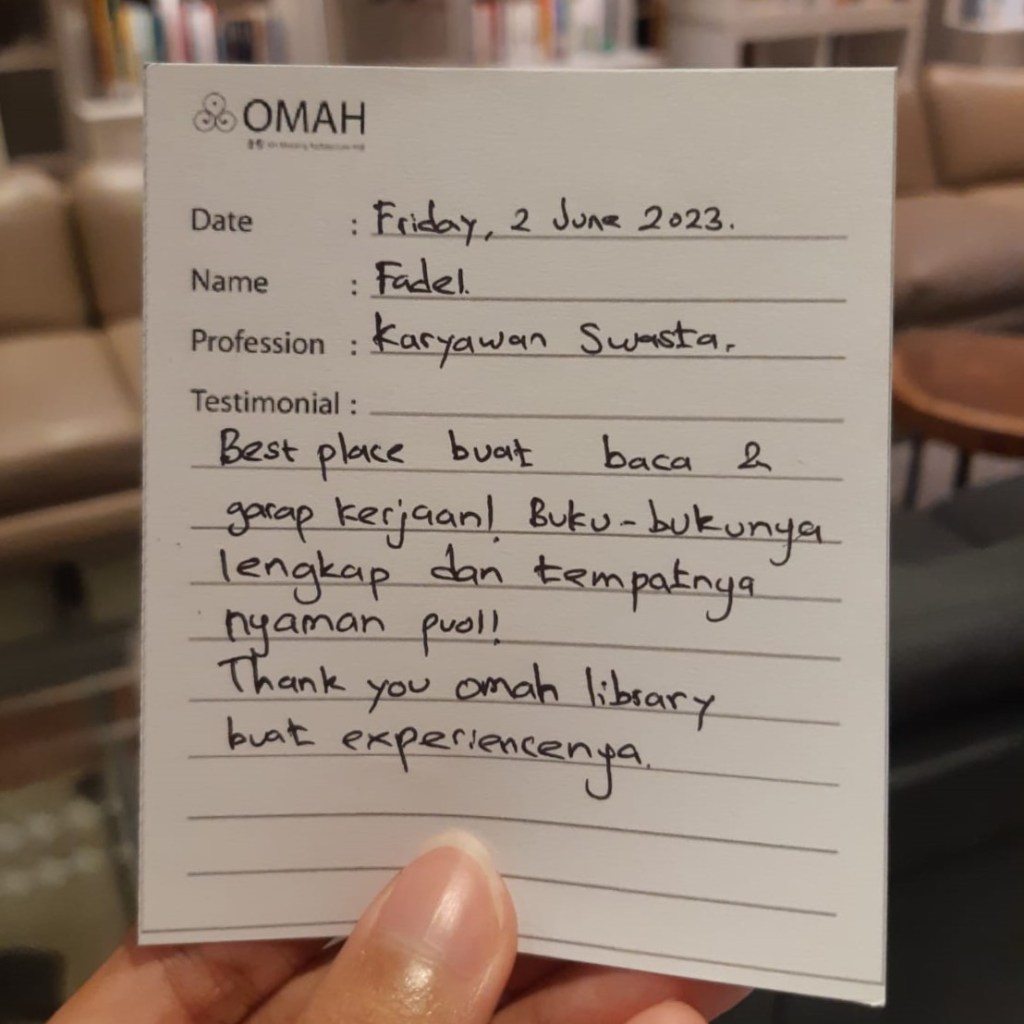 OMAH
Date : Friday, 2 June 2023.
Name : Fadel.
Profession : Karyawan Swasta.
Testimonial :
Best place buat baca &
garap kerjaan! Buku-bukunya
lengkap dan tempatnya
nyaman puol!
Thank you omah library
buat experiencenya.